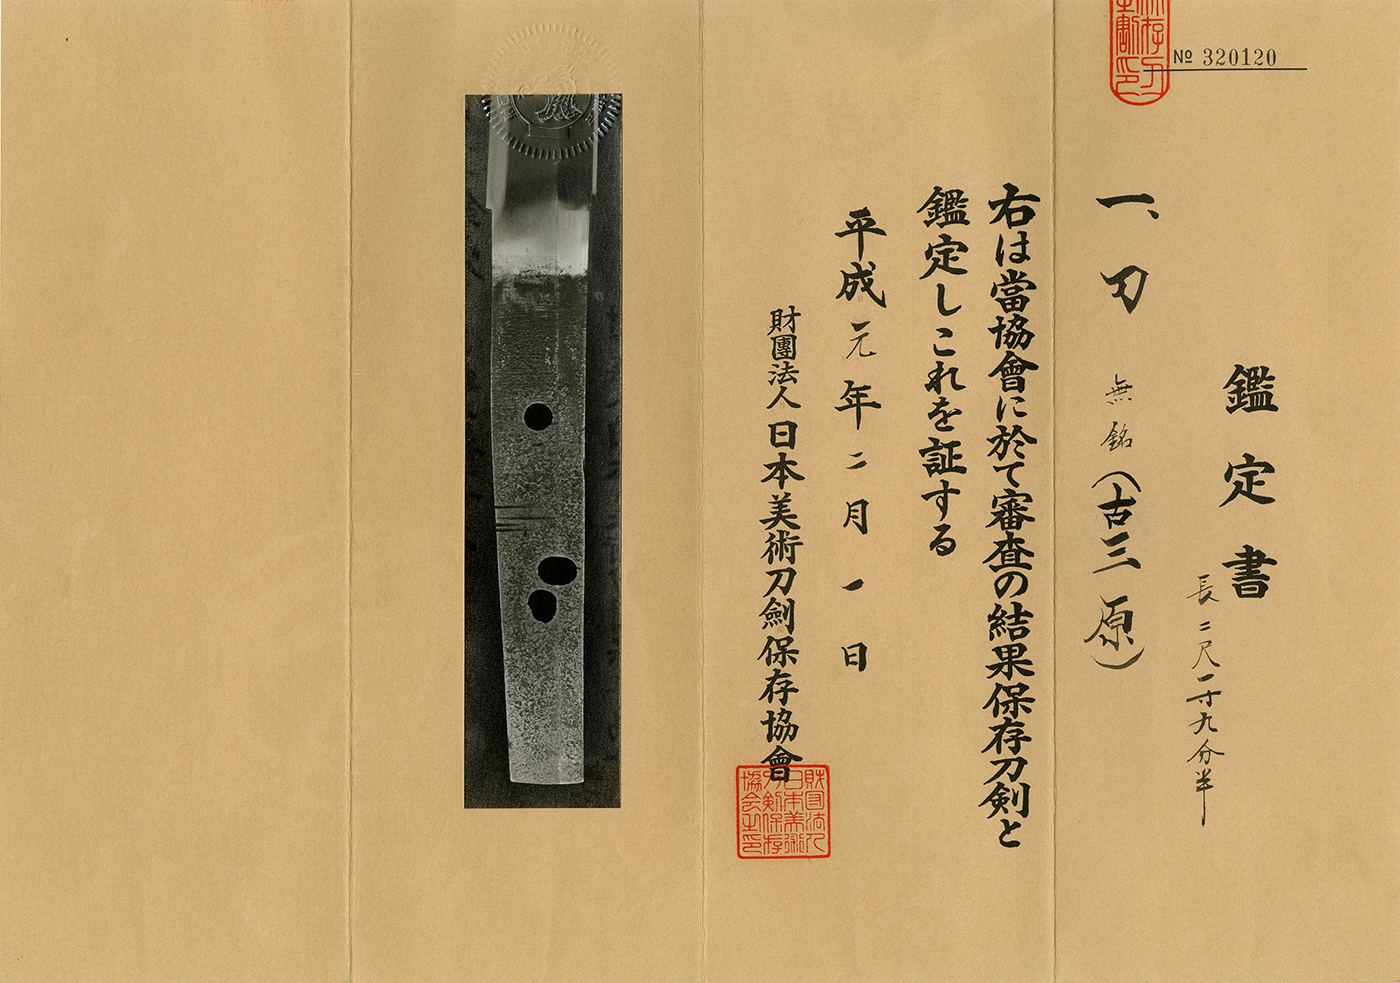 № 320120
鑑定書
長二尺一寸九分半
一、刀
無銘(古三原)
右は當協會に於て審査の結果保存刀剣と
鑑定しこれを証する
平成元年二月一日
財團法人日本美術刀劍保存協會
財団法人
日本美術
刀剣保存
協会之印